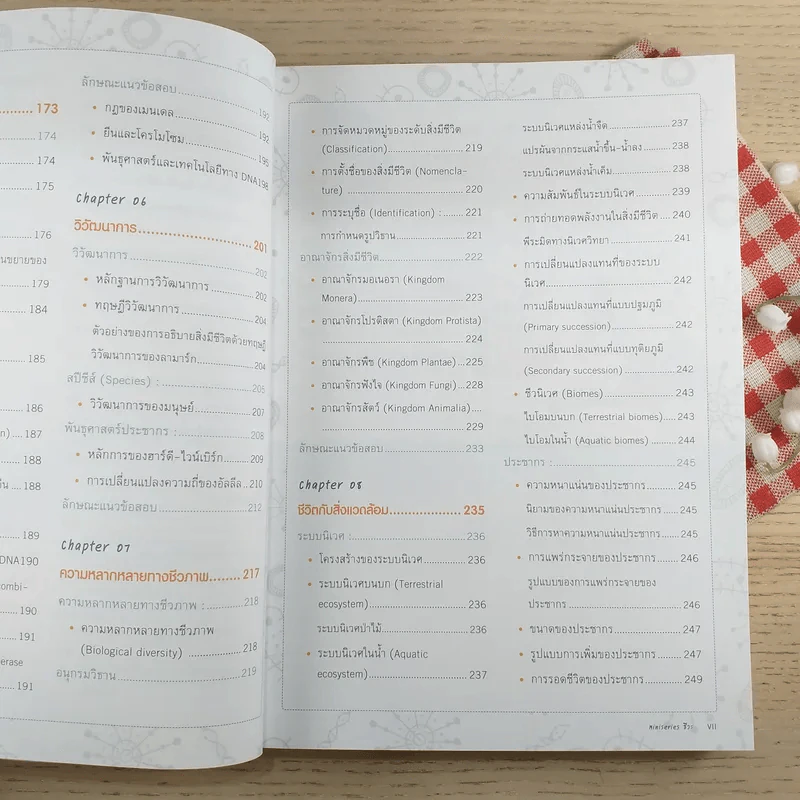 173
174
174
175
176
นขยายของ
179
184
185
186
n)....187
188
188
189
DNA190
ombi-
190
191
erase
191
ลักษณะแนวข้อสอบ 192
• กฎของเมนเดล 192
• ยีนและโครโมโซม 195
• พันธุศาสตร์และเทคโนโลยีทาง DNA198
Chapter 06
วิวัฒนาการ 201
วิวัฒนาการ 202
• หลักฐานการวิวัฒนาการ 202
• ทฤษฎีวิวัฒนาการ 204
ตัวอย่างของการอธิบายสิ่งมีชีวิตด้วยทฤษฎี
วิวัฒนาการของลามาร์ก 204
สปีชีส์ (Species) : 205
• วิวัฒนาการของมนุษย์ 207
พันธุศาสตร์ประชากร : 208
• หลักการของฮาร์ดี-ไวน์เบิร์ก 209
• การเปลี่ยนแปลงความถี่ของอัลลีล 210
ลักษณะแนวข้อสอบ 212
Chapter 07
ความหลากหลายทางชีวภาพ 217
ความหลากหลายทางชีวภาพ : 218
• ความหลากหลายทางชีวภาพ
(Biological diversity) 218
อนุกรมวิธาน 219
• การจัดหมวดหมู่ของระดับสิ่งมีชีวิต
(Classification) 219
• การตั้งชื่อของสิ่งมีชีวิต (Nomencla-
ture) 220
• การระบุชื่อ (Identification) : 221
การกำหนดรูปวิธาน 221
อาณาจักรสิ่งมีชีวิต 222
• อาณาจักรมอเนอรา (Kingdom
Monera) 223
• อาณาจักรโปรติสตา (Kingdom Protista)
224
• อาณาจักรพืช (Kingdom Plantae) 225
• อาณาจักรฟังใจ (Kingdom Fungi) 228
• อาณาจักรสัตว์ (Kingdom Animalia)
229
ลักษณะแนวข้อสอบ 233
Chapter 08
ชีวิตกับสิ่งแวดล้อม 235
ระบบนิเวศ : 236
• โครงสร้างของระบบนิเวศ 236
• ระบบนิเวศบนบก (Terrestrial
ecosystem) 236
ระบบนิเวศป่าไม้ 236
• ระบบนิเวศในน้ำ (Aquatic
ecosystem) 237
ระบบนิเวศแหล่งน้ำจืด 237
แปรผันจากกระแสน้ำขึ้น-น้ำลง 238
ระบบนิเวศแหล่งน้ำเค็ม 238
• ความสัมพันธ์ในระบบนิเวศ 239
• การถ่ายทอดพลังงานในสิ่งมีชีวิต 240
พีระมิดทางนิเวศวิทยา 241
• การเปลี่ยนแปลงแทนที่ของระบบ
นิเวศ 242
การเปลี่ยนแปลงแทนที่แบบปฐมภูมิ
(Primary succession) 242
การเปลี่ยนแปลงแทนที่แบบทุติยภูมิ
(Secondary succession) 242
• ชีวนิเวศ (Biomes) 243
ไบโอมบนบก (Terrestrial biomes) 243
ไบโอมในน้ำ (Aquatic biomes) 244
ประชากร : 245
• ความหนาแน่นของประชากร 245
นิยามของความหนาแน่นประชากร 245
วิธีการหาความหนาแน่นประชากร 245
• การแพร่กระจายของประชากร 246
รูปแบบของการแพร่กระจายของ
ประชากร 246
• ขนาดของประชากร 247
• รูปแบบการเพิ่มของประชากร 247
• การรอดชีวิตของประชากร 249
Miniseries ชีวะ VII